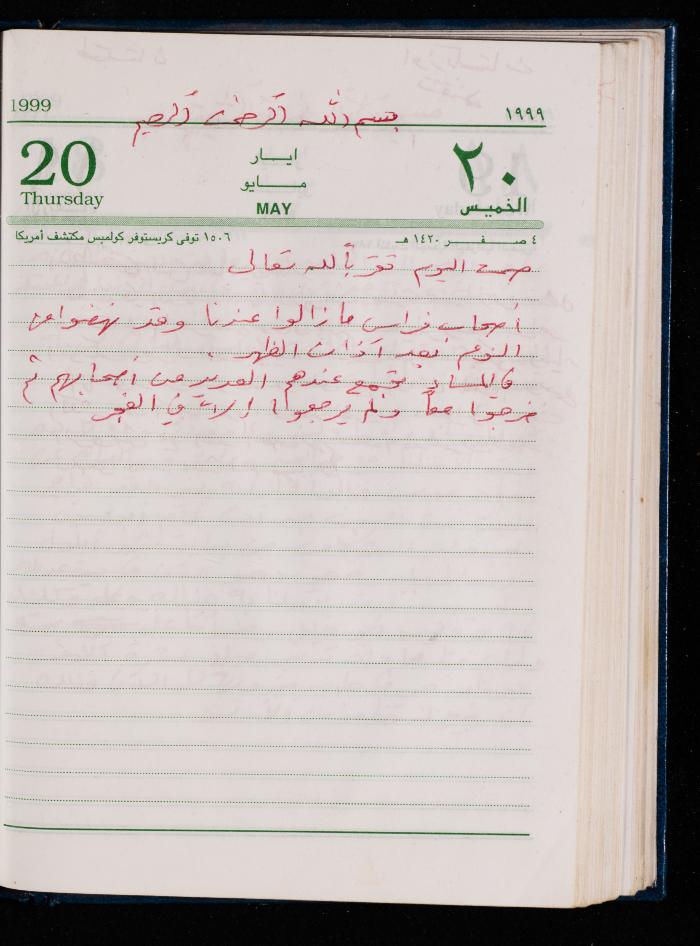 بسم الله الرحمن الرحيم
1999
١٩٩٩
20
ايار
٢٠
Thursday
مايو
الخميس
MAY
٤ صفر ١٤٢٠ هـ
١٥٠٦ توفى كريستوفر كولمبس مكتشف أمريكا
صمت اليوم تقرباً لله تعالى
أصحاب فراس ما زالوا عندنا وقد نهضوا من
النوم بعد آذان الظهر .
في المساء تجمع عندهم العديد من أصحابهم ثم
خرجوا معاً ولم يرجعوا إلا في الفجر